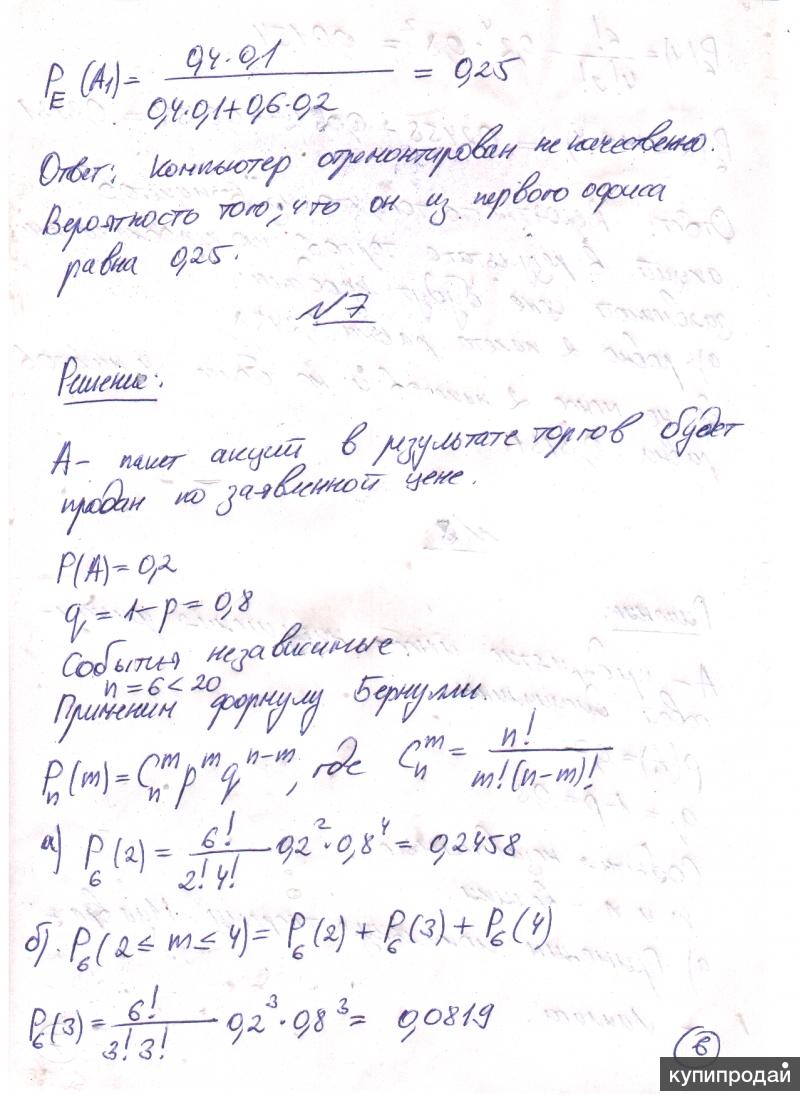 P_E (A₁) = (0,4·0,1) / (0,4·0,1+0,6·0,2) = 0,25
Ответ: Компьютер отремонтирован не качественно.
Вероятность того, что он из первого офиса
равна 0,25.
№7
Решение:
А – пакет акций в результате торгов будет
продан по заявленной цене.
P(A) = 0,2
q = 1-p = 0,8
События независимые.
n = 6 < 20
Применим формулу Бернулли.
P_n(m) = C_n^m p^m q^(n-m), где C_n^m = n! / (m!(n-m)!)
а) P₆(2) = 6! / (2! 4!) 0,2²·0,8⁴ = 0,2458
б). P₆(2 ≤ m ≤ 4) = P₆(2) + P₆(3) + P₆(4)
P₆(3) = 6! / (3! 3!) 0,2³·0,8³ = 0,0819
6
купипродай